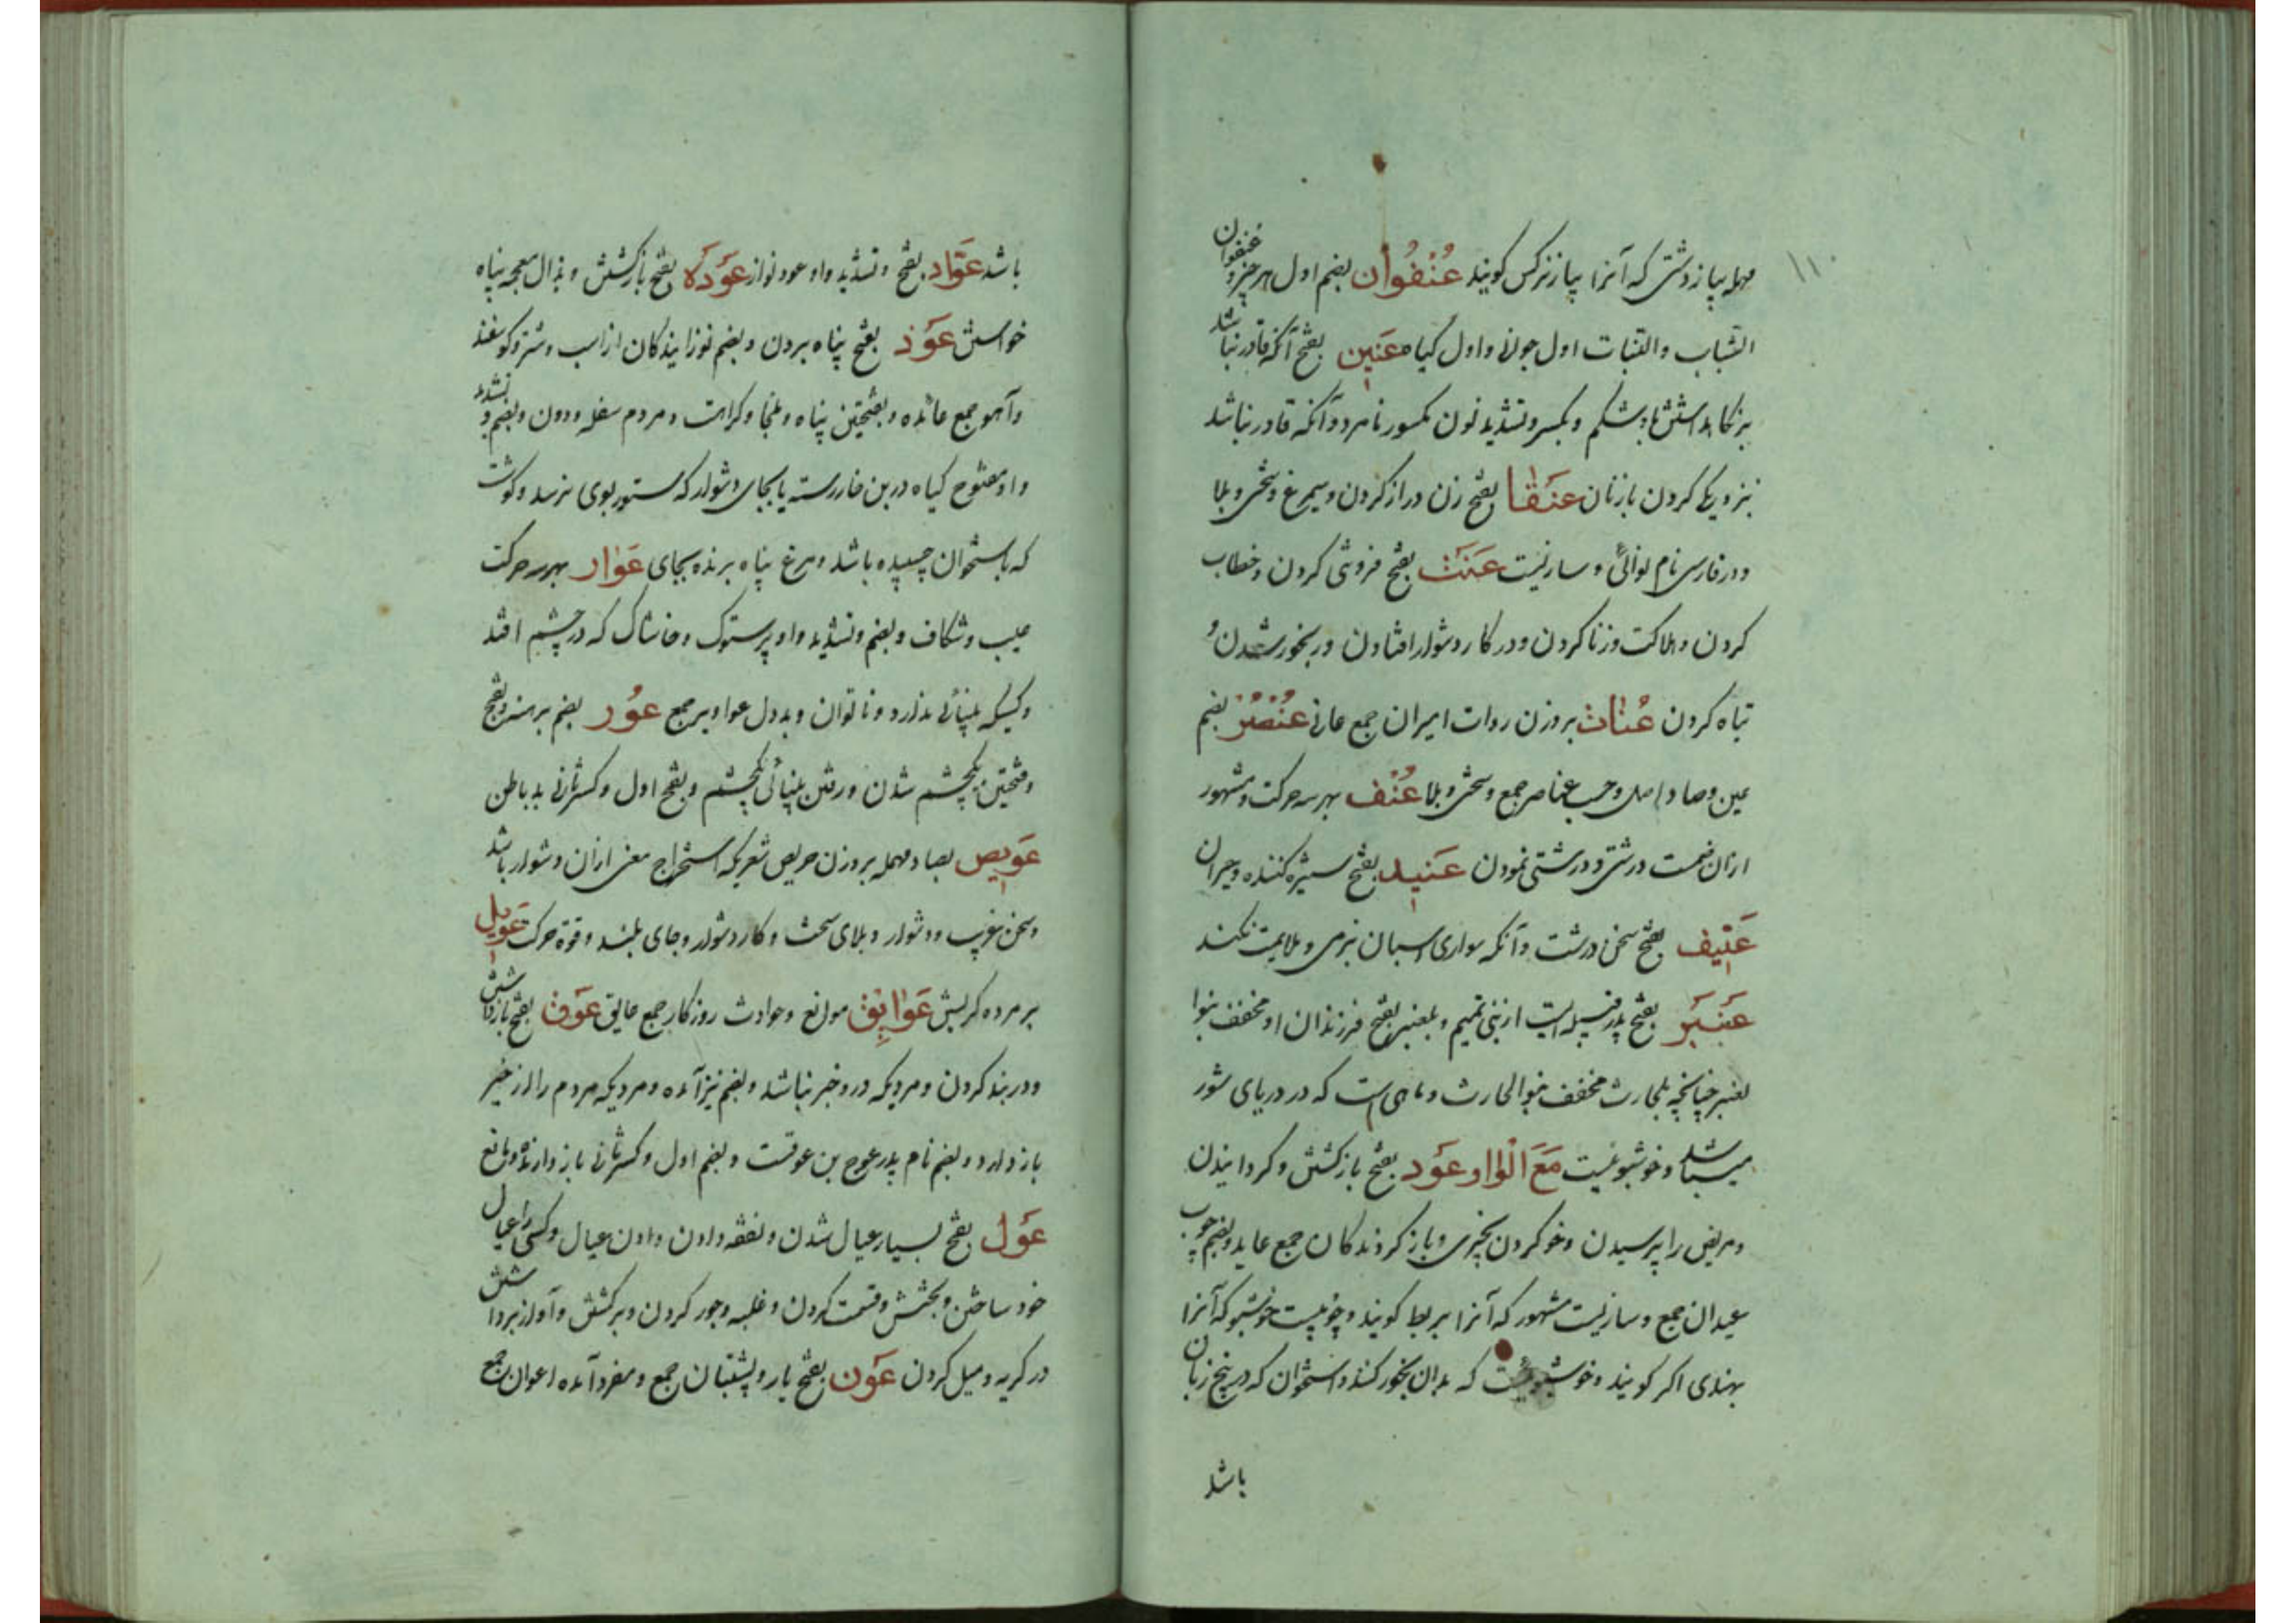 ۱۱۰
مهمله پیاز دشتی که آنرا پیاز نرکس کویند عُنْفُوان بضم اول هر چیز و عنفوان
الشباب والنبات اول جوانی و اول کیاه عَنین بفتح آنکه قادر نباشد
بر نکاهداشتن باد شکم و بکسر و تشدید نون مکسور نامرد و آنکه قادر نباشد
بنزدیکی کردن بازنان عَنقا بفتح زن دراز کردن و سیمرغ و سختی و بلا
و در فارسی نام نوائی و سازیست عَنَت بفتح فروشی کردن و خطاب
کردن و هلاکت و زنا کردن و در کار دشوار افتادن و رنجور شدن و
تباه کردن عُنات بروزن روات اسیران جمع عانی عُنْصُر بضم
عین و صاد اصل و حسب عناصر جمع و سختی و بلا عُنْف بهر سه حرکت و مشهور
ازان ضمست درشتی و درشتی نمودن عَنید بفتح ستیزه کننده و حیران
عَنیف بفتح سخن درشت و آنکه سواری اسبان بنرمی و ملایمت نکند
عَنبَر بفتح پدر قبیله ایست از بنی تمیم و بلعنبر بفتح فرزندان او مخفف بنوا
لعنبر چنانچه بلحارث مخفف بنوالحارث و ماهی است که در دریای شور
میباشد و خوشبوئیست مَعَ الْوَاو عَوَد بفتح بازکشتن و کردانیدن
و مریض را پرسیدن و خو کردن بچیزی و باز کردندکان جمع عاید و بضم چوب
عیدان جمع و سازیست مشهور که آنرا بربط کویند و چوبیست خوشبو که آنرا
بهندی اکر کویند و خوشبوئیست که بدان بخور کنند و استخوان که در بیخ زبان
باشد
باشد عَوّاد بفتح و تشدید واو عود نواز عَوْدَه بفتح بازکشتن و بذال معجمه پناه
خواستن عَوَذ بفتح پناه بردن و بضم نوزایندکان از اسب و شتر و کوسفند
و آهو جمع عائذه و بفتحتین پناه و ملجا و کراهت و مردم سفله و دون و بضم و تشدید
واو مفتوح کیاه در بن خار رسته یا بجای دشوار که ستور بوی نرسد و کوشت
که باستخوان چسپیده باشد و مرغ پناه برنده بجای عَوار بهر سه حرکت
عیب و شکاف و بضم و تشدید واو پرستوک و خاشاک که در چشم افتد
و کسیکه بینائی ندارد و ناتوان و بددل عواویر جمع عوُر بضم برهنه و بفتح
و فتحتین یکچشم شدن و رفتن بینائی یکچشم و بفتح اول و کسر ثانی بد باطن
عَویص بصاد مهمله بروزن حریص شعریکه استخراج معنی ازان دشوار باشد
و سخن غریب و دشوار و بلای سخت و کار دشوار و جای بلند و قوة حرکت عَویل
بر مرده کریستن عَوَایِق موانع و حوادث روزکار جمع عایق عَوَق بفتح بازداشتن
و در بند کردن و مردیکه درو خیر نباشد و بضم نیز آمده و مردیکه مردم را از خیر
باز دارد و بضم نام پدر عوج بن عوقست و بضم اول و کسر ثانی باز دارنده و مانع
عَوَل بفتح بسیار عیال شدن و نفقه دادن دادن عیال و کسی را عیال
خود ساختن و بخشش و قسمت کردن و غلبه و جور کردن و برکشتن و آواز برداشتن
در کریه و میل کردن عَوَن بفتح یار و پشتبان جمع و مفرد آمده اعوان جمع